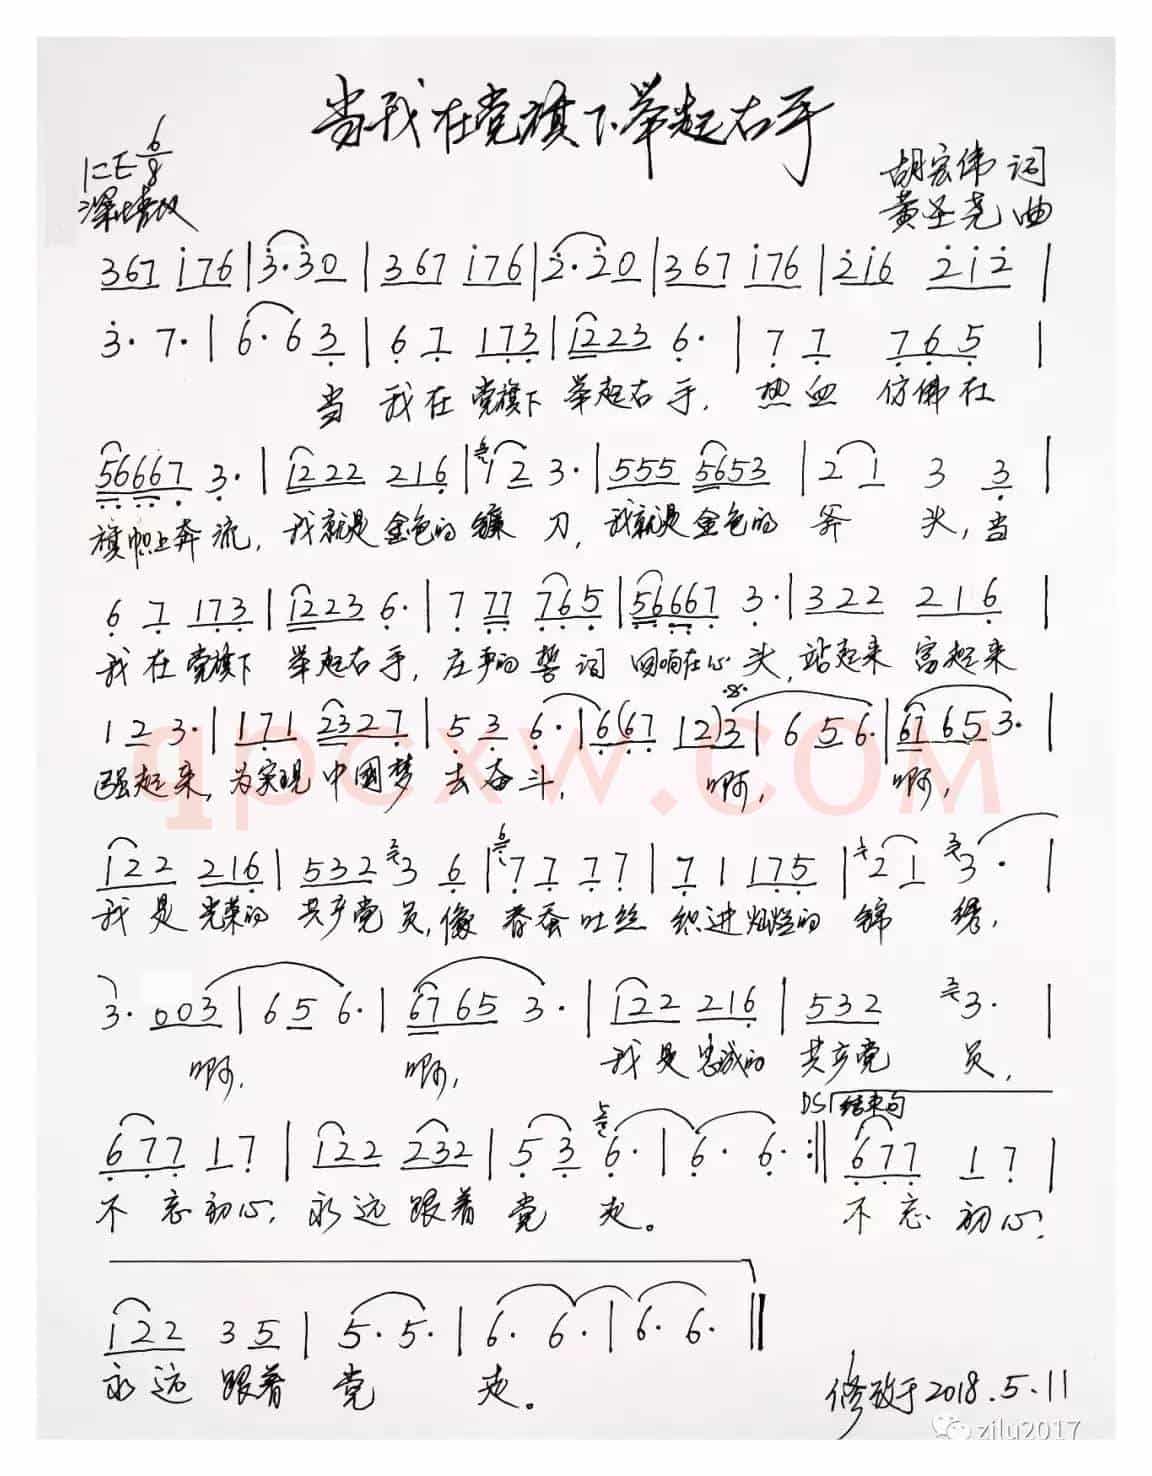 当我在党旗下举起右手
1=E 6/8
深情地
胡宏伟 词
黄圣尧 曲
367 i76 | 3·30 | 367 i76 | 2·20 | 367 i76 | 2i6 2i2 |
3· 7· | 6·63 | 67 173 | 1223 6· | 77 765 |
当 我在 党旗下 举起右手, 热血 仿佛在
56667 3· | 1222 216 | 12 3· | 555 5653 | 21 3 3 |
旗帜上奔流, 我就是金色的镰刀, 我就是金色的斧头, 当
67 173 | 1223 6· | 777 765 | 56667 3· | 322 216 |
我在党旗下 举起右手, 庄严的誓词 回响在心头, 站起来 富起来
123· | 171 2327 | 53 6· | 6(67 12)3 | 656· | 6765 3· |
强起来, 为实现 中国梦 去奋斗, 啊, 啊,
122 216 | 532 3 6 | 77 77 | 71 175 | 21 3· |
我是光荣的 共产党员, 像春蚕吐丝 织进灿烂的锦绣,
3· 003 | 656· | 6765 3· | 122 216 | 532 3· |
啊, 啊, 我是忠诚的 共产党员,
DS 结束句
677 17 | 122 232 | 53 6· | 6· 6· :|| 677 17 |
不忘初心, 永远跟着党走。 不忘初心,
122 35 | 5· 5· | 6· 6· | 6· 6· ||
永远 跟着 党 走。
修改于2018.5.11
zilu2017
qpcxw.com